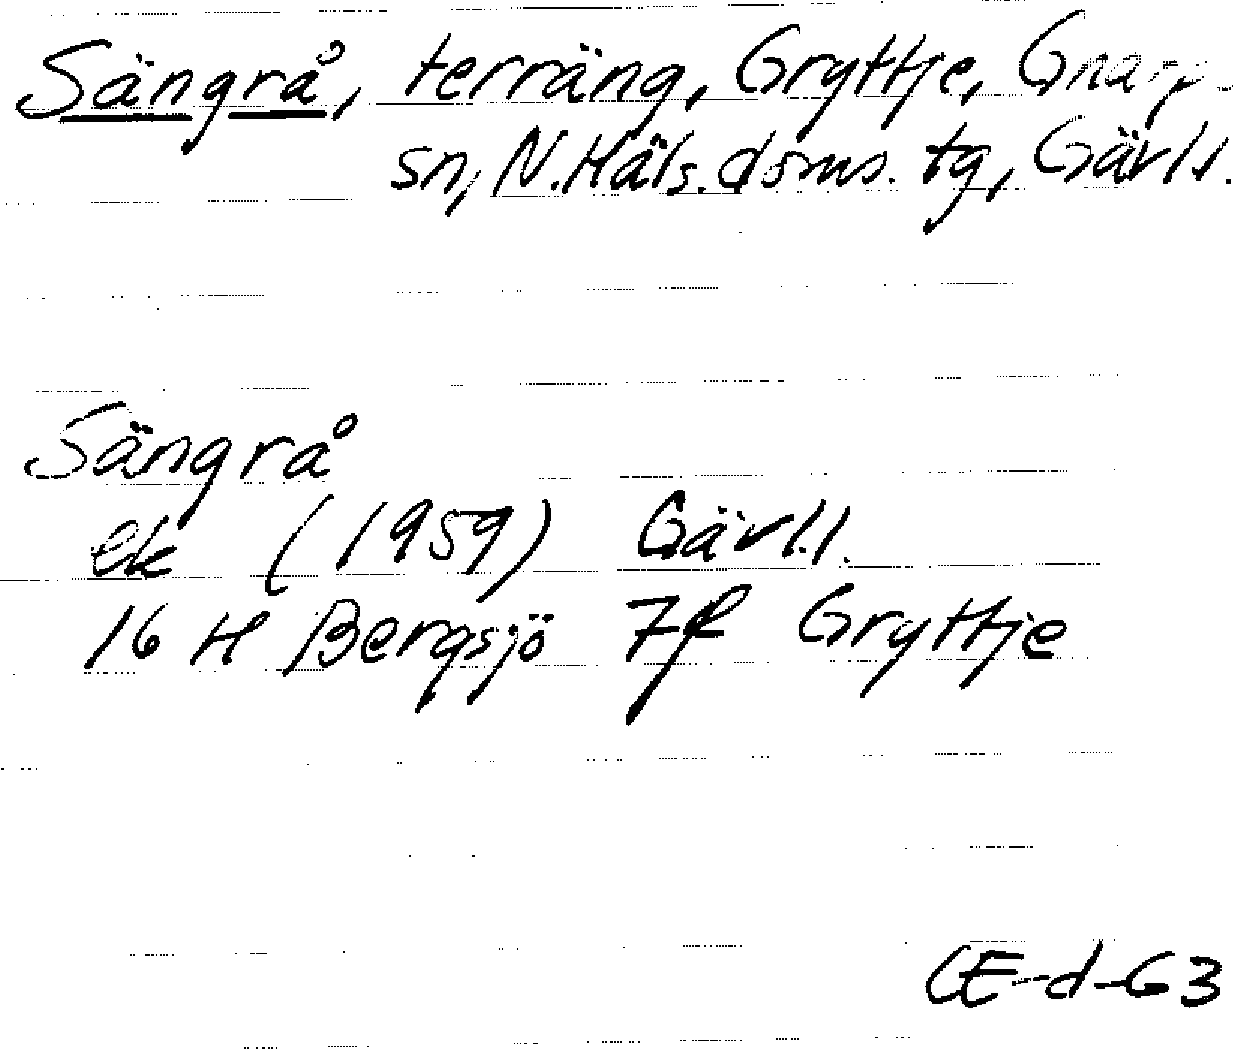 Sängrå, terräng, Gryttje, Gnarp
sn, N. Häls. doms. tg, Gävl.l.
Sängrå
ek (1959) Gävl.l.
16 H Bergsjö 7f Gryttje
CE-d-63